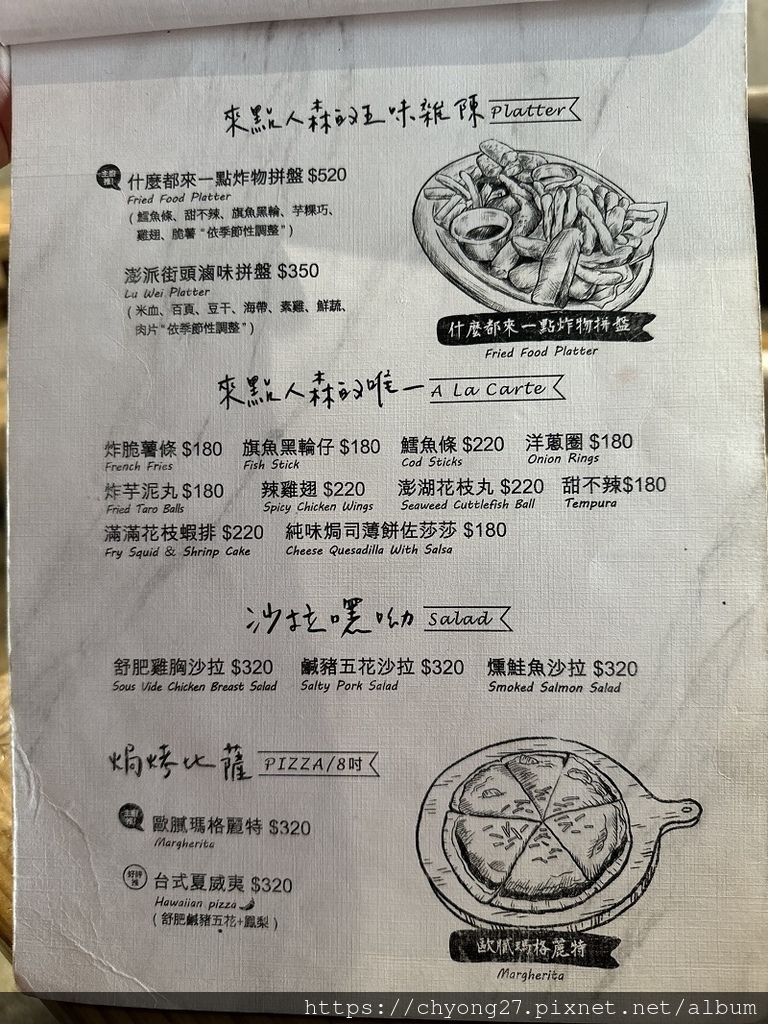 來點人森的五味雜陳 Platter
主廚推 什麼都來一點炸物拼盤 $520
Fried Food Platter
(鱈魚條、甜不辣、旗魚黑輪、芋粿巧、
雞翅、脆薯“依季節性調整”)
澎派街頭滷味拼盤 $350
Lu Wei Platter
(米血、百頁、豆干、海帶、素雞、鮮蔬、
肉片“依季節性調整”)
什麼都來一點炸物拼盤
Fried Food Platter
來點人森的唯一 A La Carte
炸脆薯條 $180 旗魚黑輪仔 $180 鱈魚條 $220 洋蔥圈 $180
French Fries Fish Stick Cod Sticks Onion Rings
炸芋泥丸 $180 辣雞翅 $220 澎湖花枝丸 $220 甜不辣$180
Fried Taro Balls Spicy Chicken Wings Seaweed Cuttlefish Ball Tempura
滿滿花枝蝦排 $220 純味焗司薄餅佐莎莎 $180
Fry Squid & Shrinp Cake Cheese Quesadilla With Salsa
沙拉嘿呦 Salad
舒肥雞胸沙拉 $320 鹹豬五花沙拉 $320 燻鮭魚沙拉 $320
Sous Vide Chicken Breast Salad Salty Pork Salad Smoked Salmon Salad
焗烤比薩 PIZZA/8吋
主廚推 歐膩瑪格麗特 $320
Margherita
好評推 台式夏威夷 $320
Hawaiian pizza
(舒肥鹹豬五花+鳳梨)
歐膩瑪格麗特
Margherita
https://chyong27.pixnet.net/album